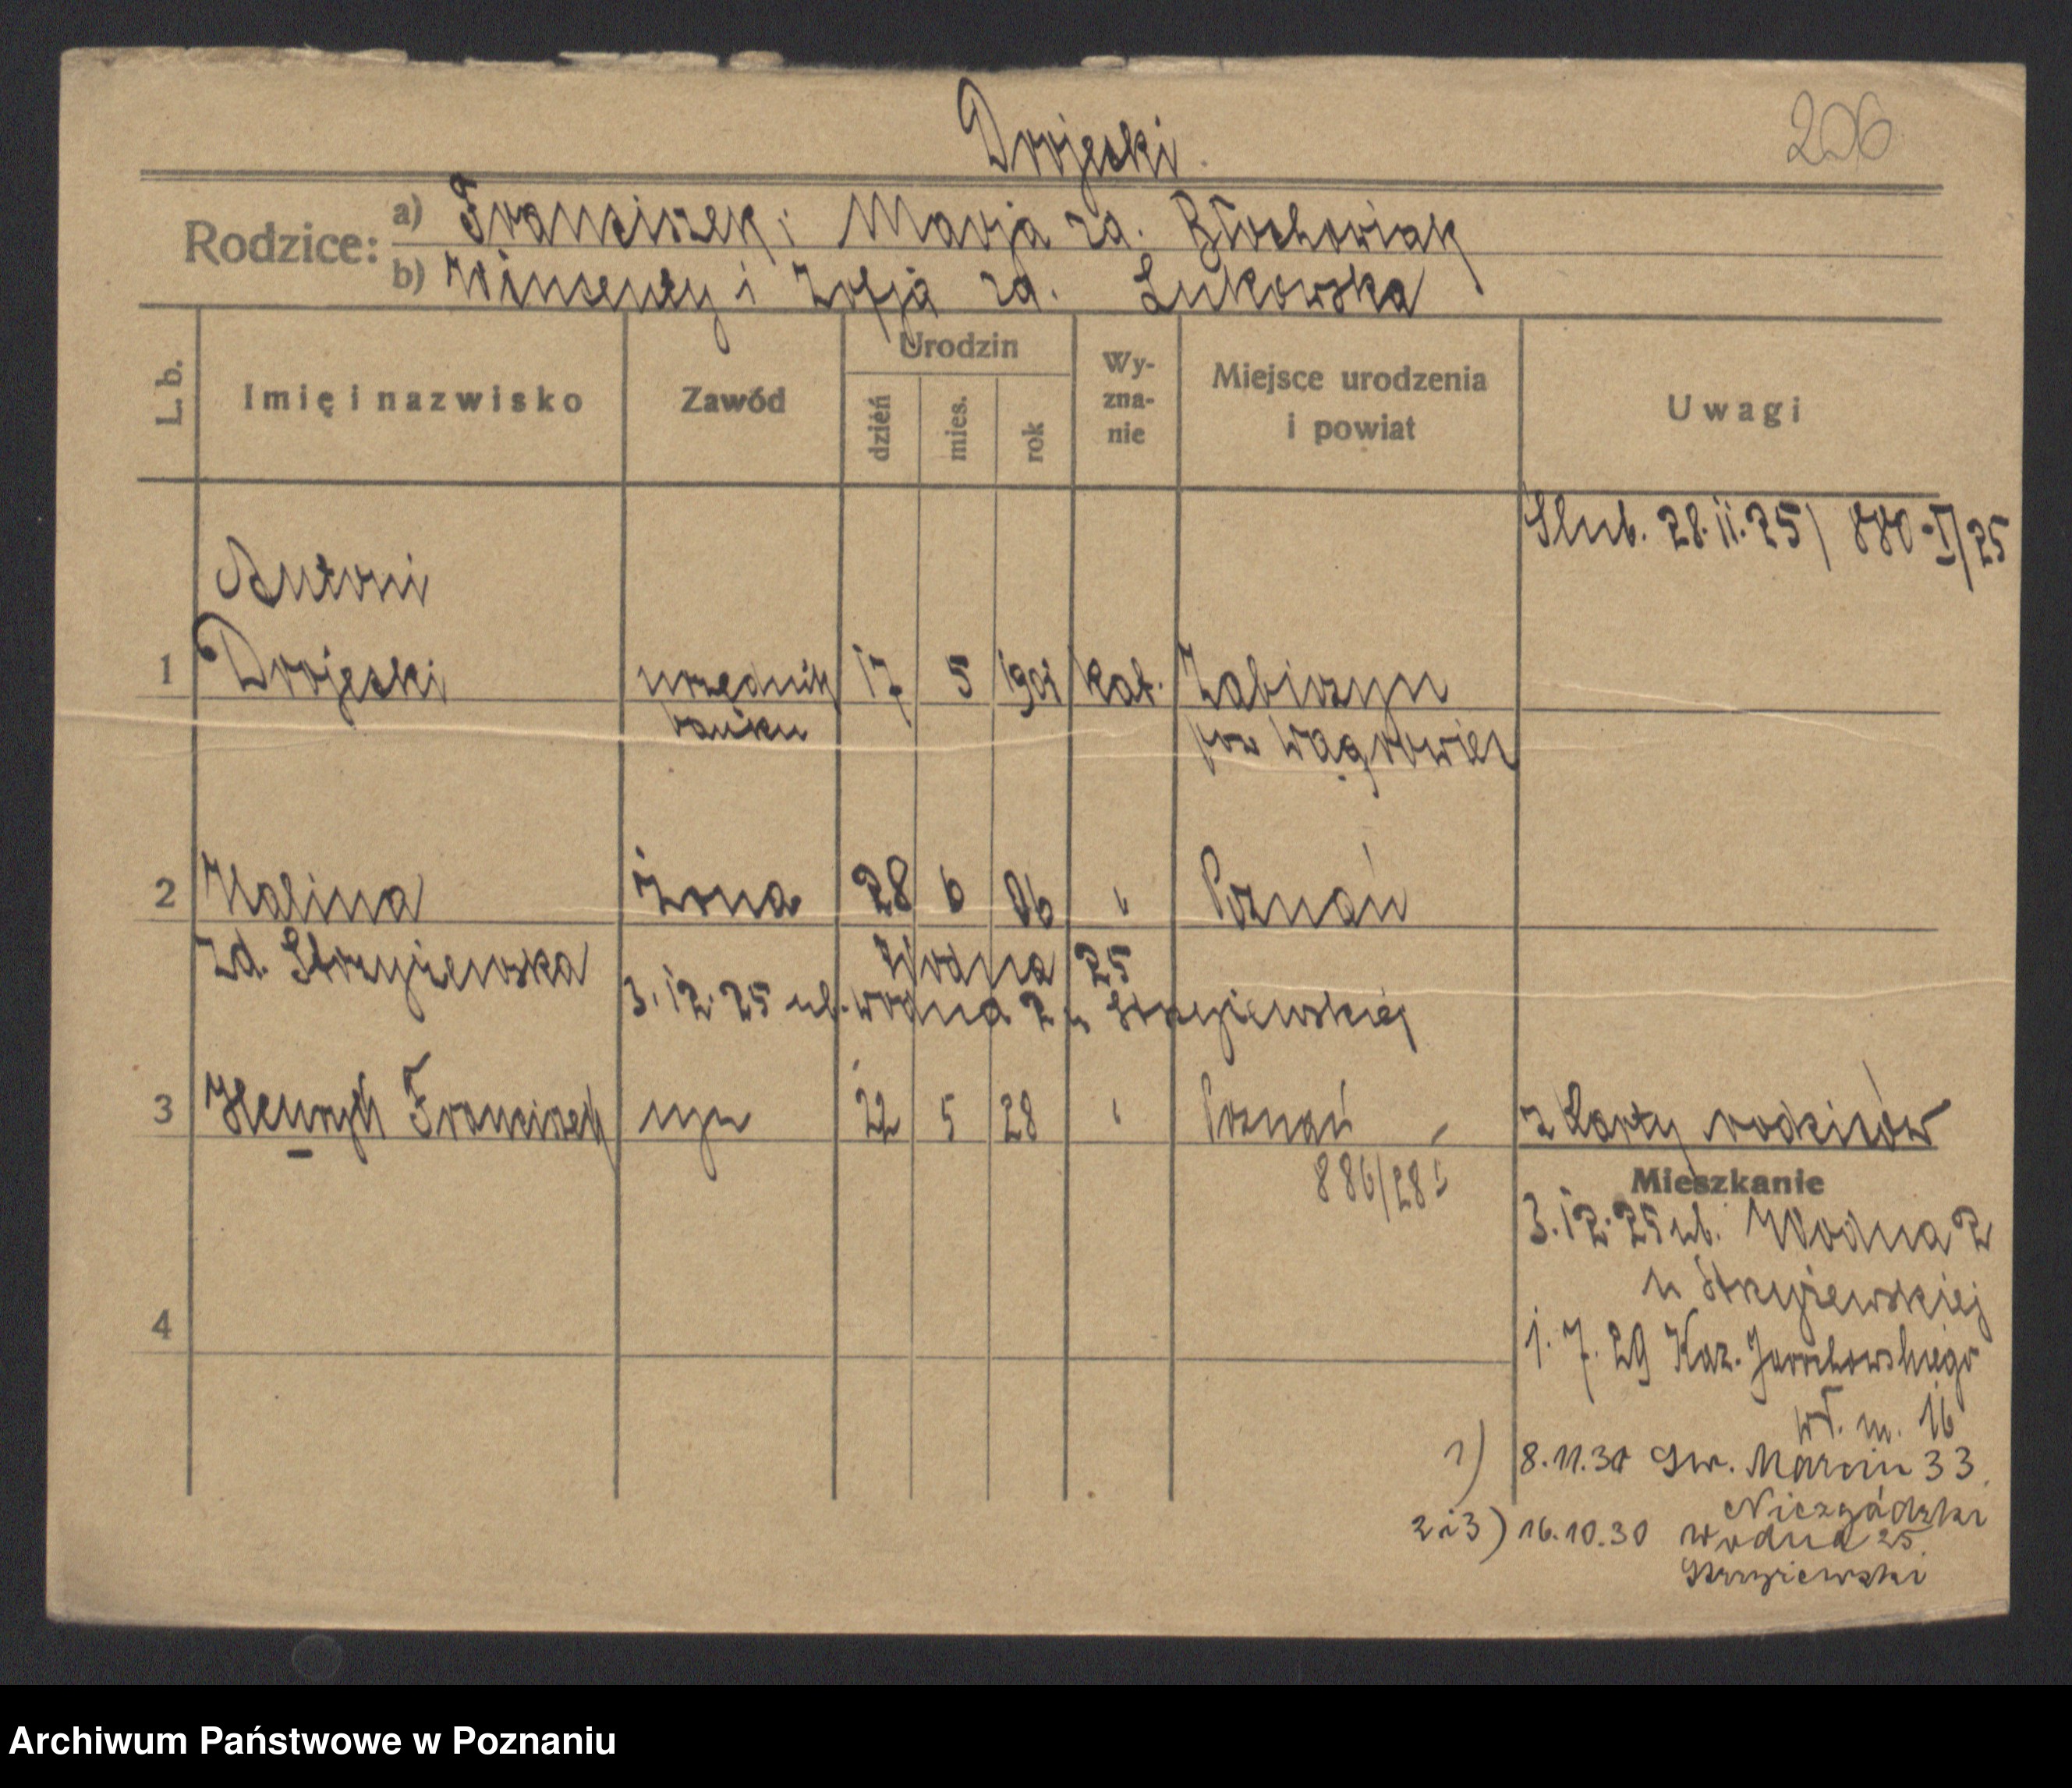 Drojeski
206
Rodzice:
a) Franciszek i Marja zd. Błochowiak
b) Wincenty i Zofja zd. Łukowska
L. b.
Imię i nazwisko
Zawód
Urodzin
dzień
mies.
rok
Wy-
zna-
nie
Miejsce urodzenia
i powiat
Uwagi
Ślub. 28.11.25 / 880-I/25
Antoni
1 Drojeski urzędnik 17 5 kat. Żabiczyn
banku pow Wągrowiec
2 Halina żona 28 6 06 " Poznań
zd. Strzyżewska Wodna 25
3.12.25 ul. Wodna 2 u Strzyżewskiej
3 Henryk Franciszek syn 22 5 28 " Poznań z karty rodziców
886/28
Mieszkanie
3.12.25 ul. Wodna 2
u Strzyżewskiej
4
1.7.29 Kaz. Jarochowskiego
wł. m. 16
1) 8.11.30 Św. Marcin 33
Niezgódzki
2 i 3) 16.10.30 Wodna 25
Strzyżewski
Archiwum Państwowe w Poznaniu